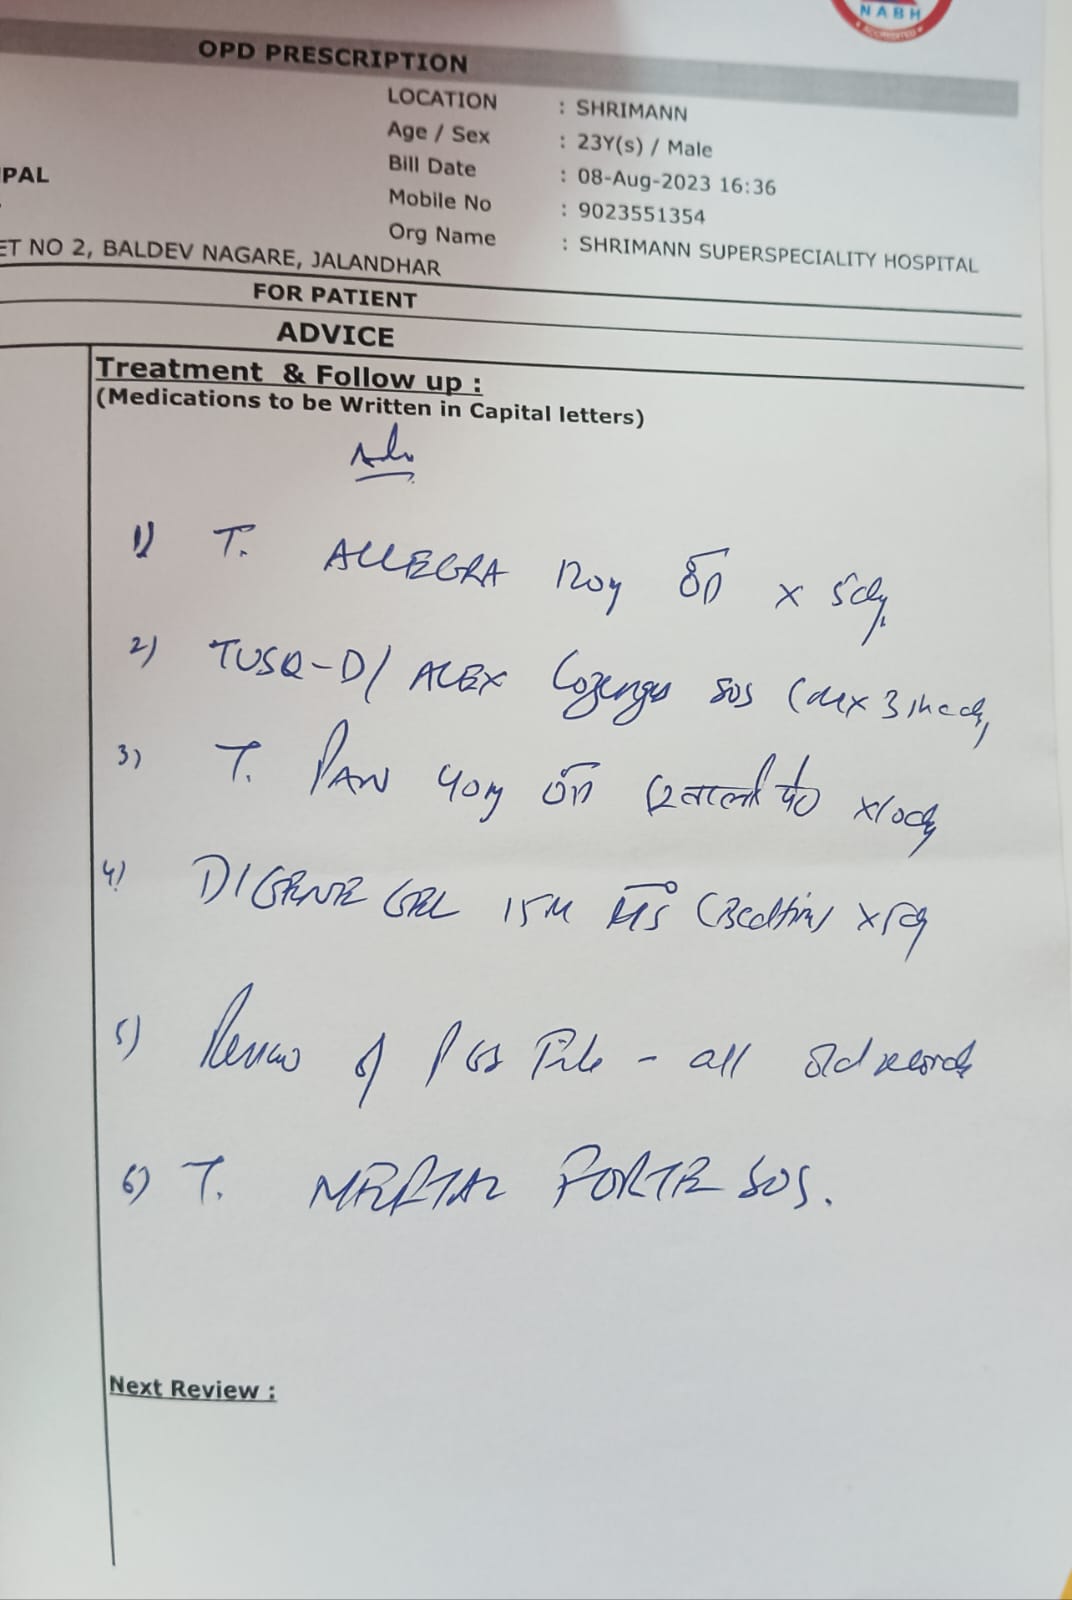 NABH
ACCREDITED
OPD PRESCRIPTION
LOCATION : SHRIMANN
Age / Sex : 23Y(s) / Male
PAL Bill Date : 08-Aug-2023 16:36
Mobile No : 9023551354
Org Name : SHRIMANN SUPERSPECIALITY HOSPITAL
ET NO 2, BALDEV NAGARE, JALANDHAR
FOR PATIENT
ADVICE
Treatment & Follow up :
(Medications to be Written in Capital letters)
Adv
1) T. ALLEGRA 120mg OD x 5day
2) TUSQ-D/ ALEX Lozenges SOS (Max 3 in a day
3) T. PAN 40mg OD खाली पेट x10day
4) DIGENE GEL 15Ml HS (Bedtime) x5d
5) Review of Past File - all old records
6) T. MEFTAL FORTE SOS.
Next Review :